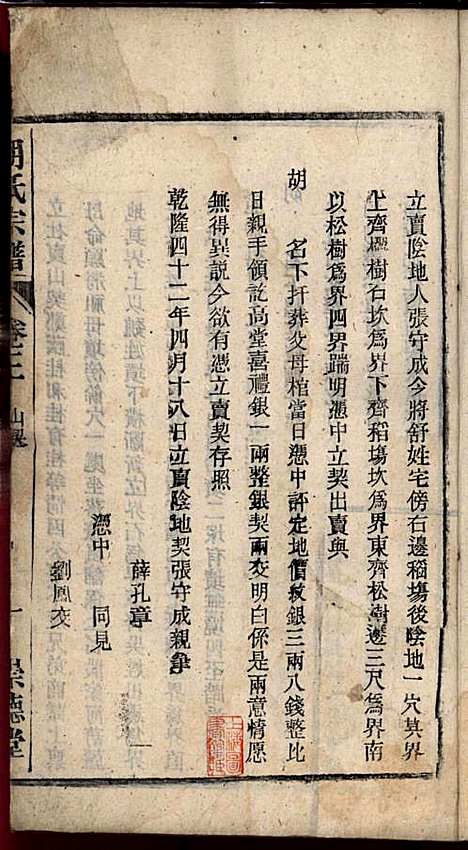 立賣陰地人張守成今將舒姓宅傍右邊稻塲後陰地一穴其界
上齊欏樹石坎爲界下齊稻塲坎爲界東齊松樹邊三尺爲界南
以松樹爲界四界踹明憑中立契出賣與
胡　名下扦葬父母棺當日憑中評定地價紋銀三兩八錢整比
日親手領訖高堂喜禮銀一兩整銀契兩交明白係是兩意情愿
無得異説今欲有憑立賣契存照
乾隆四十二年四月十八日立賣陰地契張守成親筆
薛孔章
憑中　同見
劉鳳交
胡氏宗譜
卷之二
山契
一
崇德堂